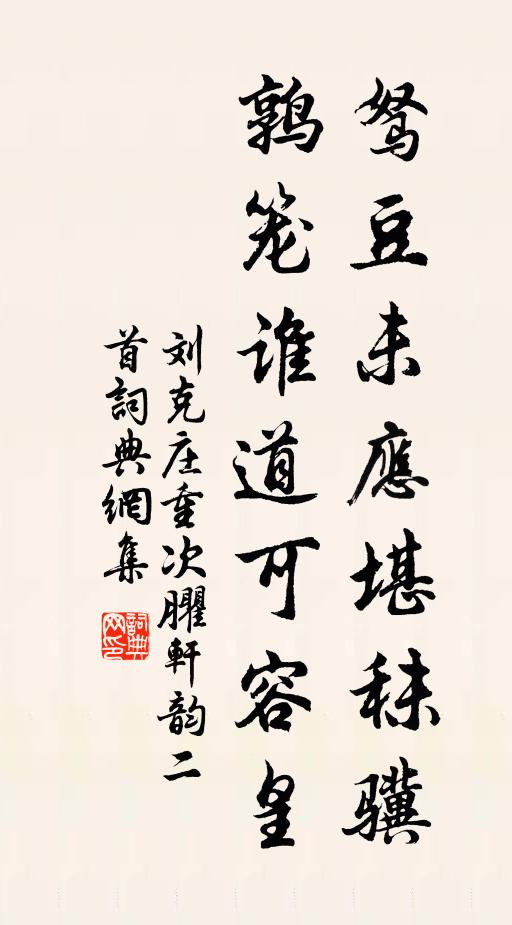 驽豆未應堪秣骥
鹑笼谁道可容皇
刘克庄重次臞軒韵二
首詞典網集
詞典网印